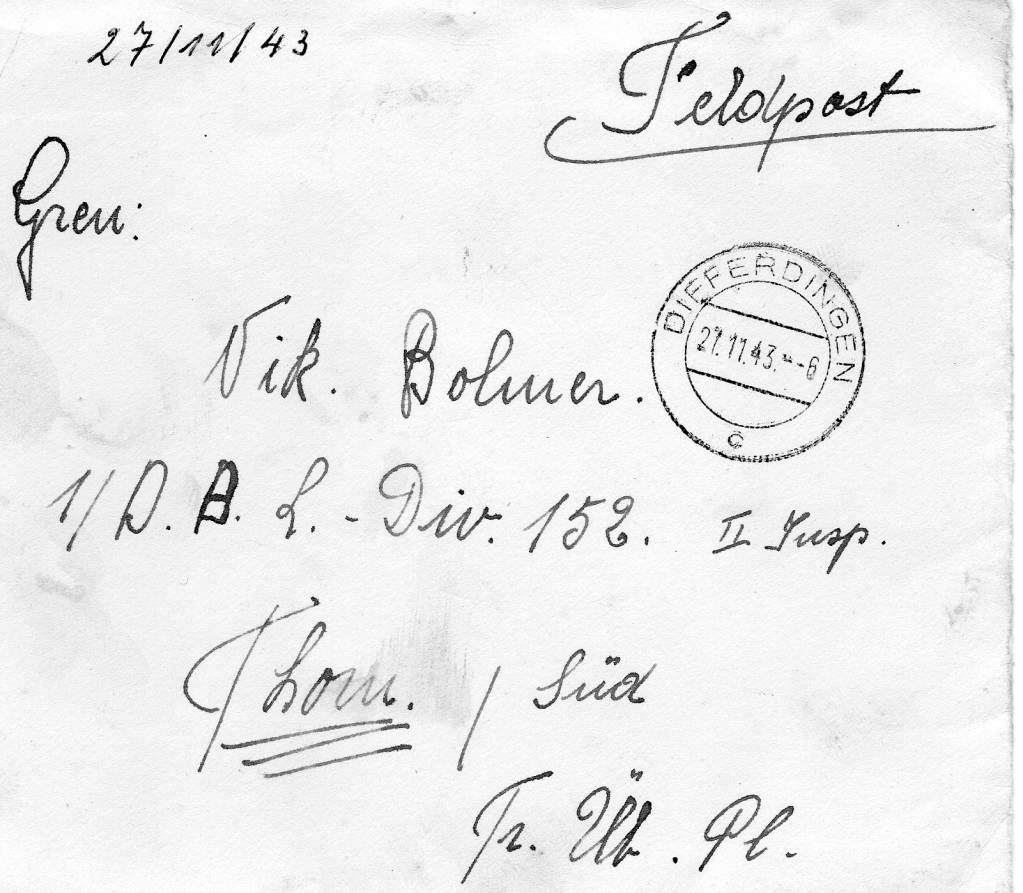 27/11/43
Feldpost
Gren:
DIFFERDINGEN
27.11.43.--6
c
Vik. Bolmer.
1/D. B. L. - Div. 152. II Insp.
Thorn. / Süd
Tr. Üb. Pl.